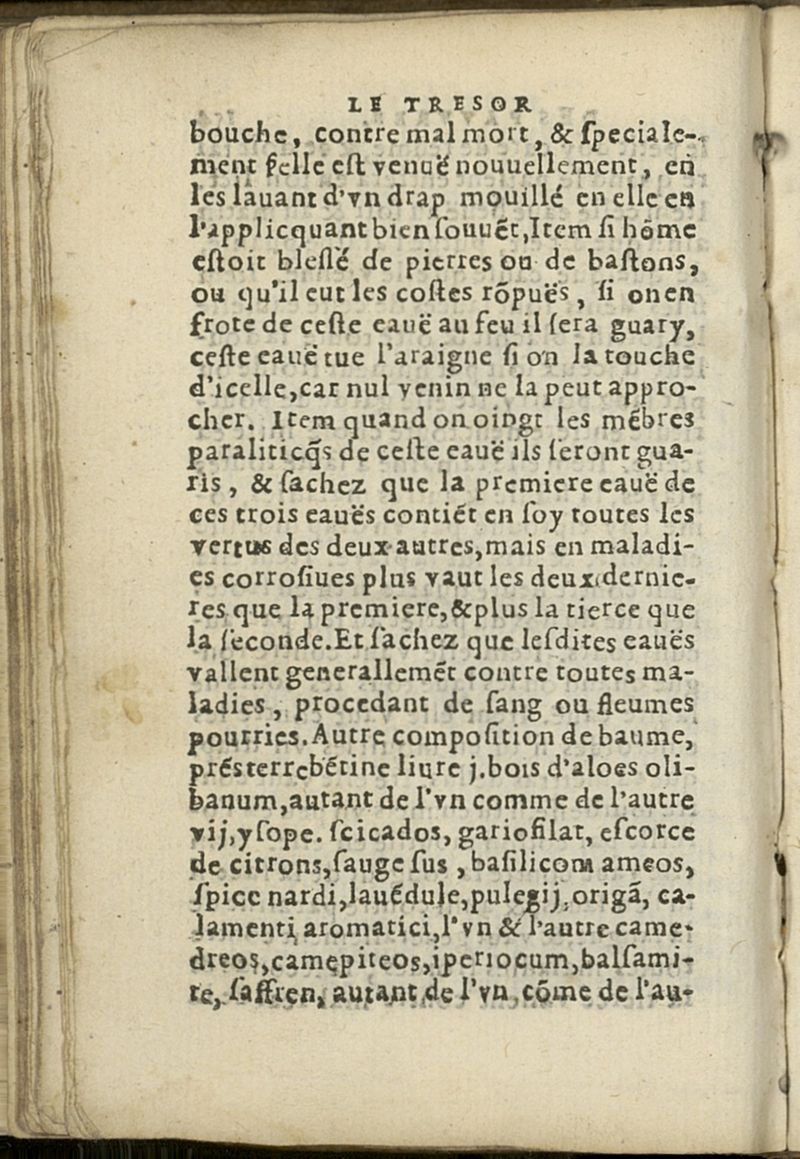 LE TRESOR
bouche, contre mal mort, & ſpeciale-
ment ſelle eſt venuë nouuellement, en
les lauant d'vn drap mouillé en elle en
l'applicquant bien ſouuẽt, Item ſi hõme
eſtoit bleſſé de pierres ou de baſtons,
ou qu'il eut les coſtes rõpuës, ſi on en
frote de ceſte eauë au feu il ſera guary,
ceſte eauë tue l'araigne ſi on la touche
d'icelle, car nul venin ne la peut appro-
cher. Item quand on oingt les mẽbres
paraliticq̃s de ceſte eauë ils ſeront gua-
ris, & ſachez que la premiere eauë de
ces trois eauës contiẽt en ſoy toutes les
vertus des deux autres, mais en maladi-
es corroſiues plus vaut les deux dernie-
res que la premiere, & plus la tierce que
la ſeconde. Et ſachez que leſdites eauës
vallent generallemẽt contre toutes ma-
ladies, procedant de ſang ou fleumes
pourries. Autre compoſition de baume,
prẽs terrebẽtine liure j. bois d'aloes oli-
banum, autant de l'vn comme de l'autre
vij, yſope. ſcicados, gariofilat, eſcorce
de citrons, ſauge ſus, baſilicom ameos,
ſpice nardi, lauẽdule, pulegij, origã, ca-
lamenti aromatici, l'vn & l'autre came-
dreos, camepiteos, iperiocum, balſami-
te, ſaffren, autant de l'vn, cõme de l'au-